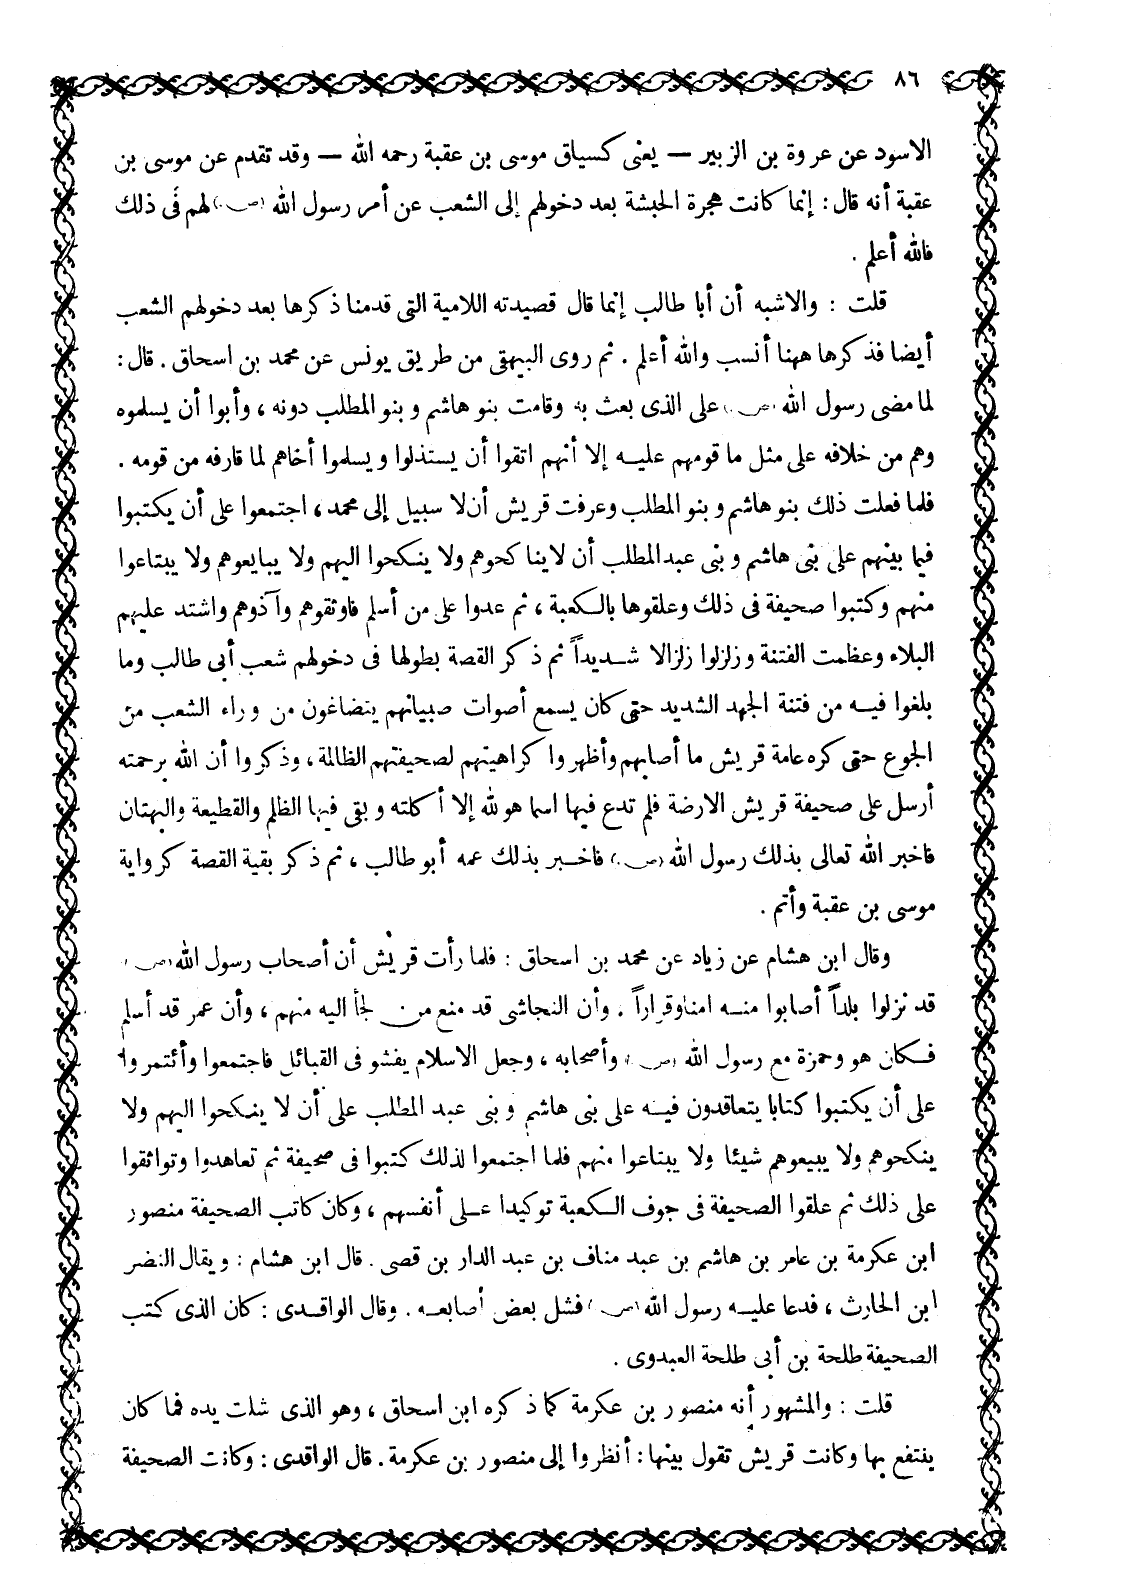 ٨٦
الاسود عن عروة بن الزبير — يعنى كسياق موسى بن عقبة رحمه الله — وقد تقدم عن موسى بن
عقبة أنه قال : إنما كانت هجرة الحبشة بعد دخولهم إلى الشعب عن أمر رسول الله (ص) لهم فى ذلك
فالله أعلم .
قلت : والاشبه أن أبا طالب إنما قال قصيدته اللامية التى قدمنا ذكرها بعد دخولهم الشعب
أيضا فذكرها ههنا أنسب والله أعلم . ثم روى البيهقى من طريق يونس عن محمد بن اسحاق . قال :
لما مضى رسول الله (ص) على الذى بعث به وقامت بنو هاشم وبنو المطلب دونه ، وأبوا أن يسلموه
وهم من خلافه على مثل ما قومهم عليه إلا أنهم اتقوا أن يستذلوا ويسلموا أخاهم لما قارفه من قومه .
فلما فعلت ذلك بنو هاشم وبنو المطلب وعرفت قريش أن لا سبيل إلى محمد ، اجتمعوا على أن يكتبوا
فيما بينهم على بنى هاشم وبنى عبد المطلب أن لا يناكحوهم ولا ينكحوا اليهم ولا يبايعوهم ولا يبتاعوا
منهم وكتبوا صحيفة فى ذلك وعلقوها بالكعبة ، ثم عدوا على من أسلم فاوثقوهم وآذوهم واشتد عليهم
البلاء وعظمت الفتنة وزلزلوا زلزالا شديداً ثم ذكر القصة بطولها فى دخولهم شعب أبى طالب وما
بلغوا فيه من فتنة الجهد الشديد حتى كان يسمع أصوات صبيانهم يتضاغون من وراء الشعب من
الجوع حتى كره عامة قريش ما أصابهم وأظهروا كراهيتهم لصحيفتهم الظالمة ، وذكروا أن الله برحمته
أرسل على صحيفة قريش الارضة فلم تدع فيها اسما هو لله إلا أكلته وبقى فيها الظلم والقطيعة والبهتان
فاخبر الله تعالى بذلك رسول الله (ص) فاخبر بذلك عمه أبو طالب ، ثم ذكر بقية القصة كرواية
موسى بن عقبة وأتم .
وقال ابن هشام عن زياد عن محمد بن اسحاق : فلما رأت قريش أن أصحاب رسول الله (ص)
قد نزلوا بلداً أصابوا منه امنا وقراراً . وأن النجاشى قد منع من لجأ اليه منهم ، وأن عمر قد أسلم
فكان هو وحمزة مع رسول الله (ص) وأصحابه ، وجعل الاسلام يفشو فى القبائل فاجتمعوا وأئتمروا
على أن يكتبوا كتابا يتعاقدون فيه على بنى هاشم وبنى عبد المطلب على أن لا ينكحوا اليهم ولا
ينكحوهم ولا يبيعوهم شيئا ولا يبتاعوا منهم فلما اجتمعوا لذلك كتبوا فى صحيفة ثم تعاهدوا وتواثقوا
على ذلك ثم علقوا الصحيفة فى جوف الكعبة توكيدا على أنفسهم ، وكان كاتب الصحيفة منصور
ابن عكرمة بن عامر بن هاشم بن عبد مناف بن عبد الدار بن قصى . قال ابن هشام : ويقال النضر
ابن الحارث ، فدعا عليه رسول الله (ص) فشل بعض أصابعه . وقال الواقدى : كان الذى كتب
الصحيفة طلحة بن أبى طلحة العبدوى .
قلت : والمشهور أنه منصور بن عكرمة كما ذكره ابن اسحاق ، وهو الذى شلت يده فما كان
ينتفع بها وكانت قريش تقول بينها : أنظروا إلى منصور بن عكرمة . قال الواقدى : وكانت الصحيفة